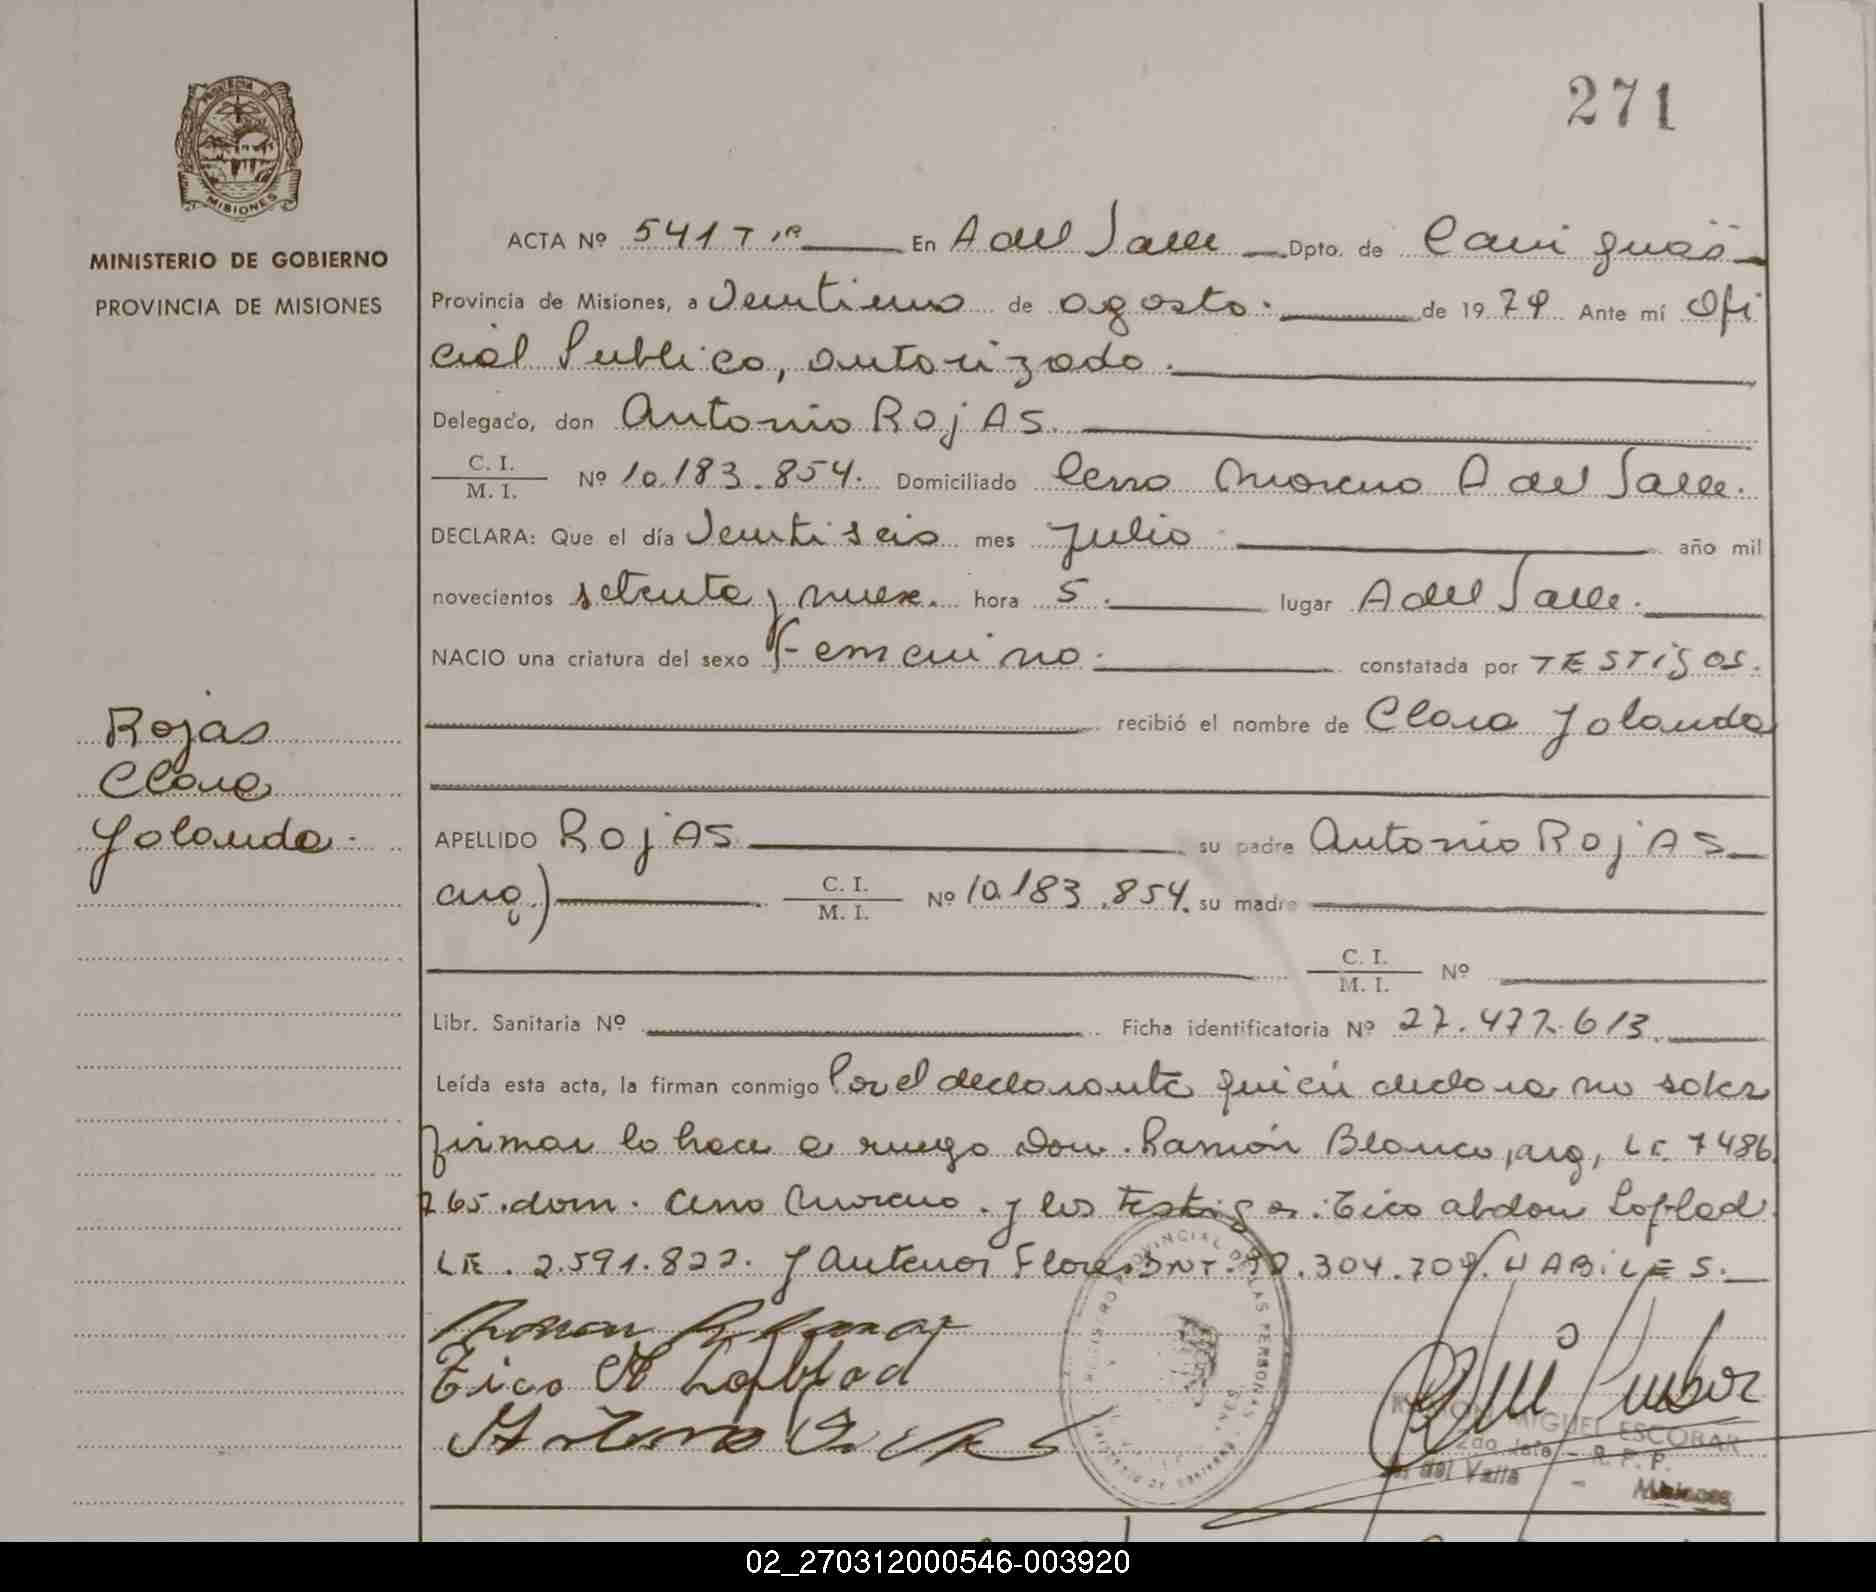 271
PROVINCIA DE
MISIONES
MINISTERIO DE GOBIERNO
PROVINCIA DE MISIONES
ACTA Nº 541 T. En A del Valle Dpto. de Cainguás
Provincia de Misiones, a Veintiuno de agosto. de 1979 Ante mí Ofi
cial Publico, autorizado.
Delegado, don Antonio ROjAS.
C. I.
M. I. Nº 10.183.854. Domiciliado Cerro Moreno A del Valle.
DECLARA: Que el día Veintiseis mes julio año mil
novecientos setenta y nueve. hora 5. lugar A del Valle.
NACIO una criatura del sexo Femenino. constatada por TESTigos.
recibió el nombre de Clara Yolanda
Rojas
Clara
Yolanda.
APELLIDO ROjAS su padre Antonio ROjAS
arg.) C. I.
M. I. Nº 10.183.854. su madre
C. I.
M. I. Nº
Libr. Sanitaria Nº Ficha identificatoria Nº 27.477.613.
Leída esta acta, la firman conmigo Por el declarante quien declara no saber
firmar lo hace a ruego Don. Ramón Blanco, arg, LE. 7486
765. dom. Cerro Moreno. y los Testigos: Tico abdon Loflad
LE. 2.591.822. y Antenor Flores DNI. .304.709. HABILES.
Tico A Loffad
REGISTRO PROVINCIAL DE LAS PERSONAS
RAMON MIGUEL ESCOBAR
2do Jefe - R. P. P.
A. del Valle - Misiones
02_270312000546-003920